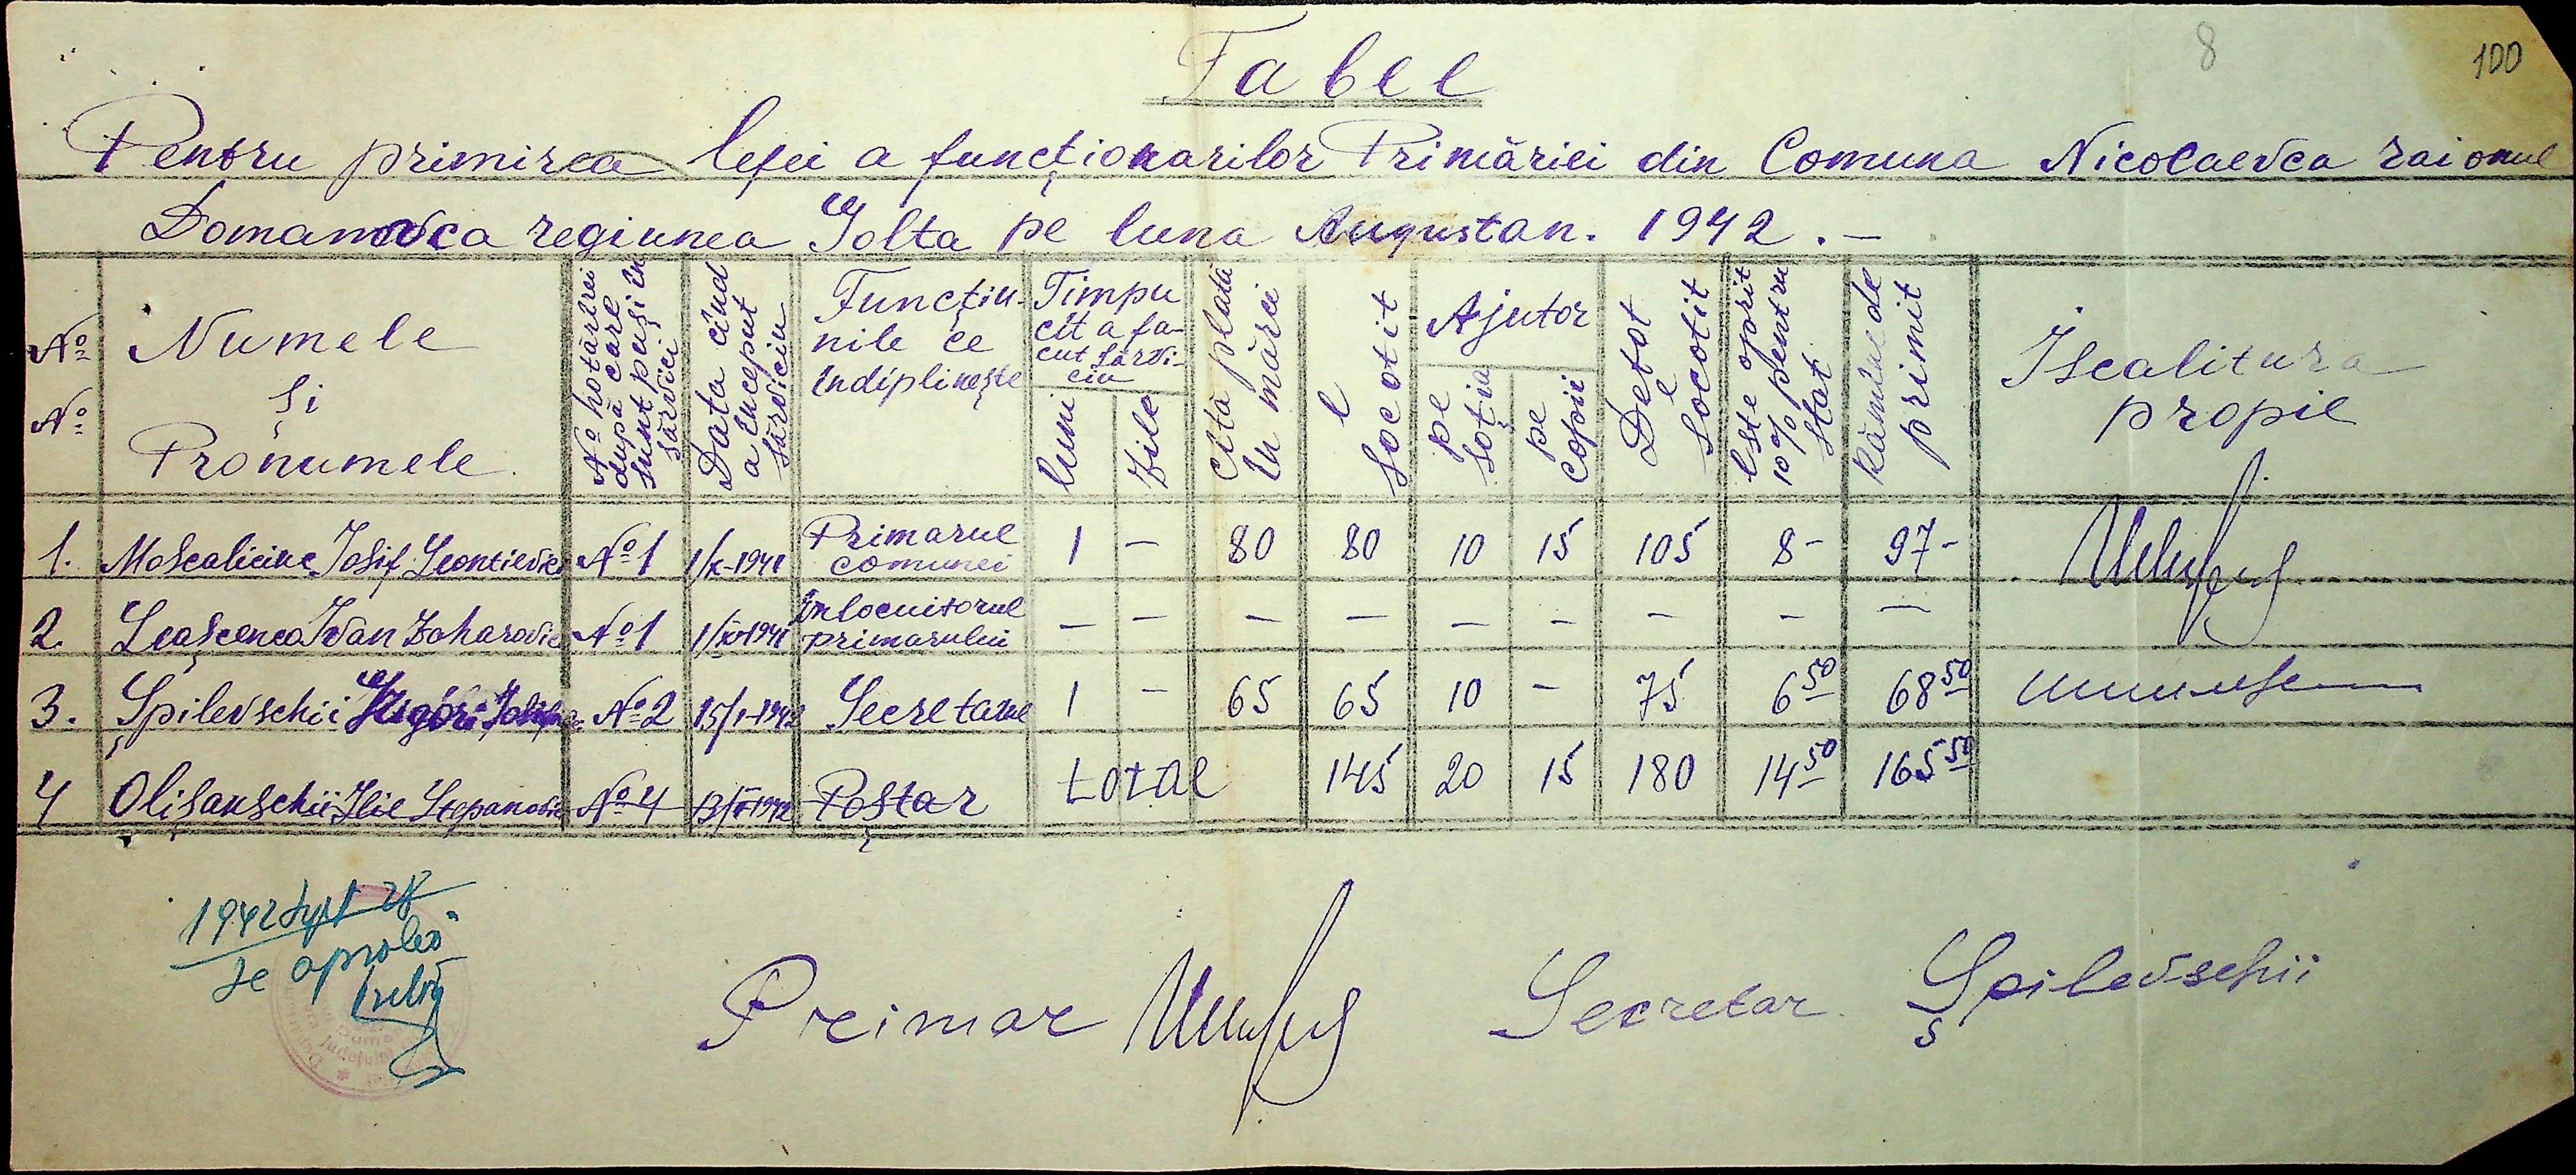 8
100
Tabel
Pentru primirea lefei a funcționarilor Primăriei din Comuna Nicolaevca raionul
Domanovca regiunea Golta pe luna August an. 1942.-
№ №
Numele și Pronumele
№ hotărîrei după care sunt puși în sărvici
Data cînd a început sărviciu
Funcțiunile ce îndiplinește
Timpu cît a facut sărviciu
luni
zile
Cîtă plată în mărci
E socotit
Ajutor
pe soția
pe copii
De tot e socotit
Este oprit 10% pentru stat
Rămîne de primit
Iscalitura propie
1. Moscaliciuc Iosif Leontievici №1 1/X-1941 Primarul comunei 1 — 80 80 10 15 105 8- 97-
2. Leașcenco Ivan Zaharovici №1 Înlocuitorul primarului — — — — — — — — —
3. Șpilevschii №2 Secretarul 1 — 65 65 10 — 75 6 50 68 50
4 Olișanschii Ilie Stepanovici №4 Poștar
total 145 20 15 180 14 50 165 50
1942 Sept 28
se aprobă
Primar
Secretar Șpilevschii